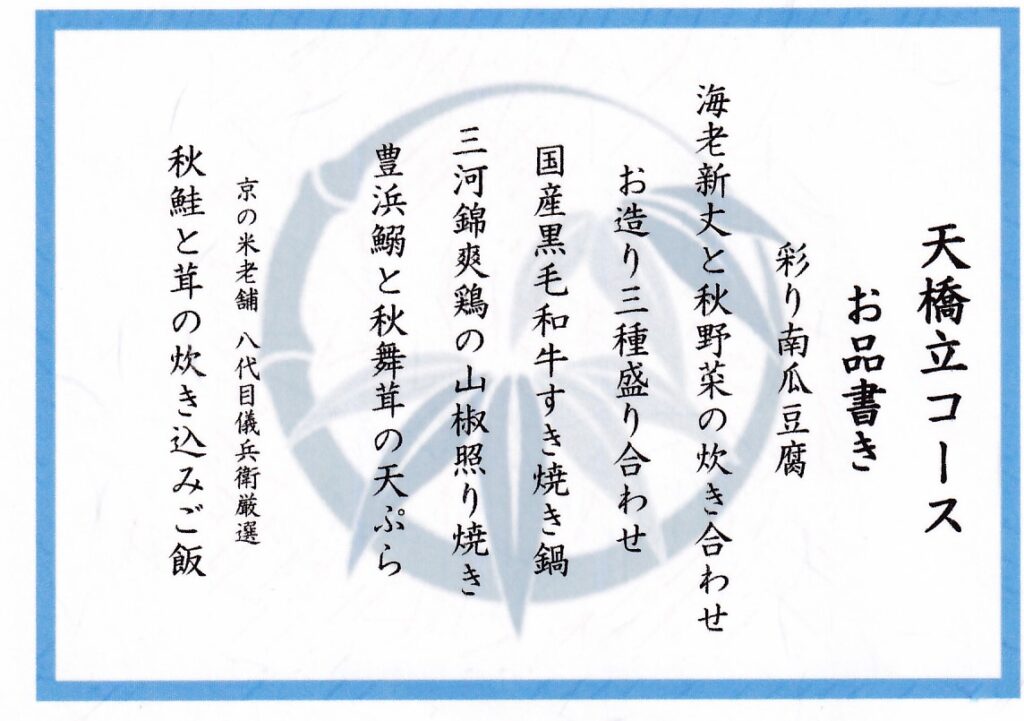 天橋立コース
お品書き
彩り南瓜豆腐
海老新丈と秋野菜の炊き合わせ
お造り三種盛り合わせ
国産黒毛和牛すき焼き鍋
三河錦爽鶏の山椒照り焼き
豊浜鰯と秋舞茸の天ぷら
京の米老舗　八代目儀兵衛厳選
秋鮭と茸の炊き込みご飯